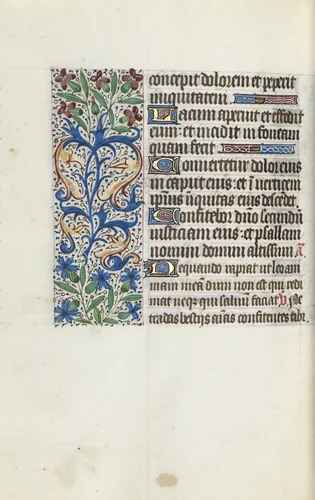 concepit dolorem et peperit
iniquitatem
Lacum aperuit et effodit
eum: et incidit in foueam
quam fecit
Conuertetur dolor eius
in caput eius: et in uerticem
ipsius iniquitas eius descedet
Confitebor dño secundū
iusticiam eius: et psallam
nomini domini altissimi A
Nequando rapiat ut leo aīam
meā dum non est qui redi
mat neqꝫ qui saluū faciat V Ne
tradas bestijs aīas confitentes tibi.